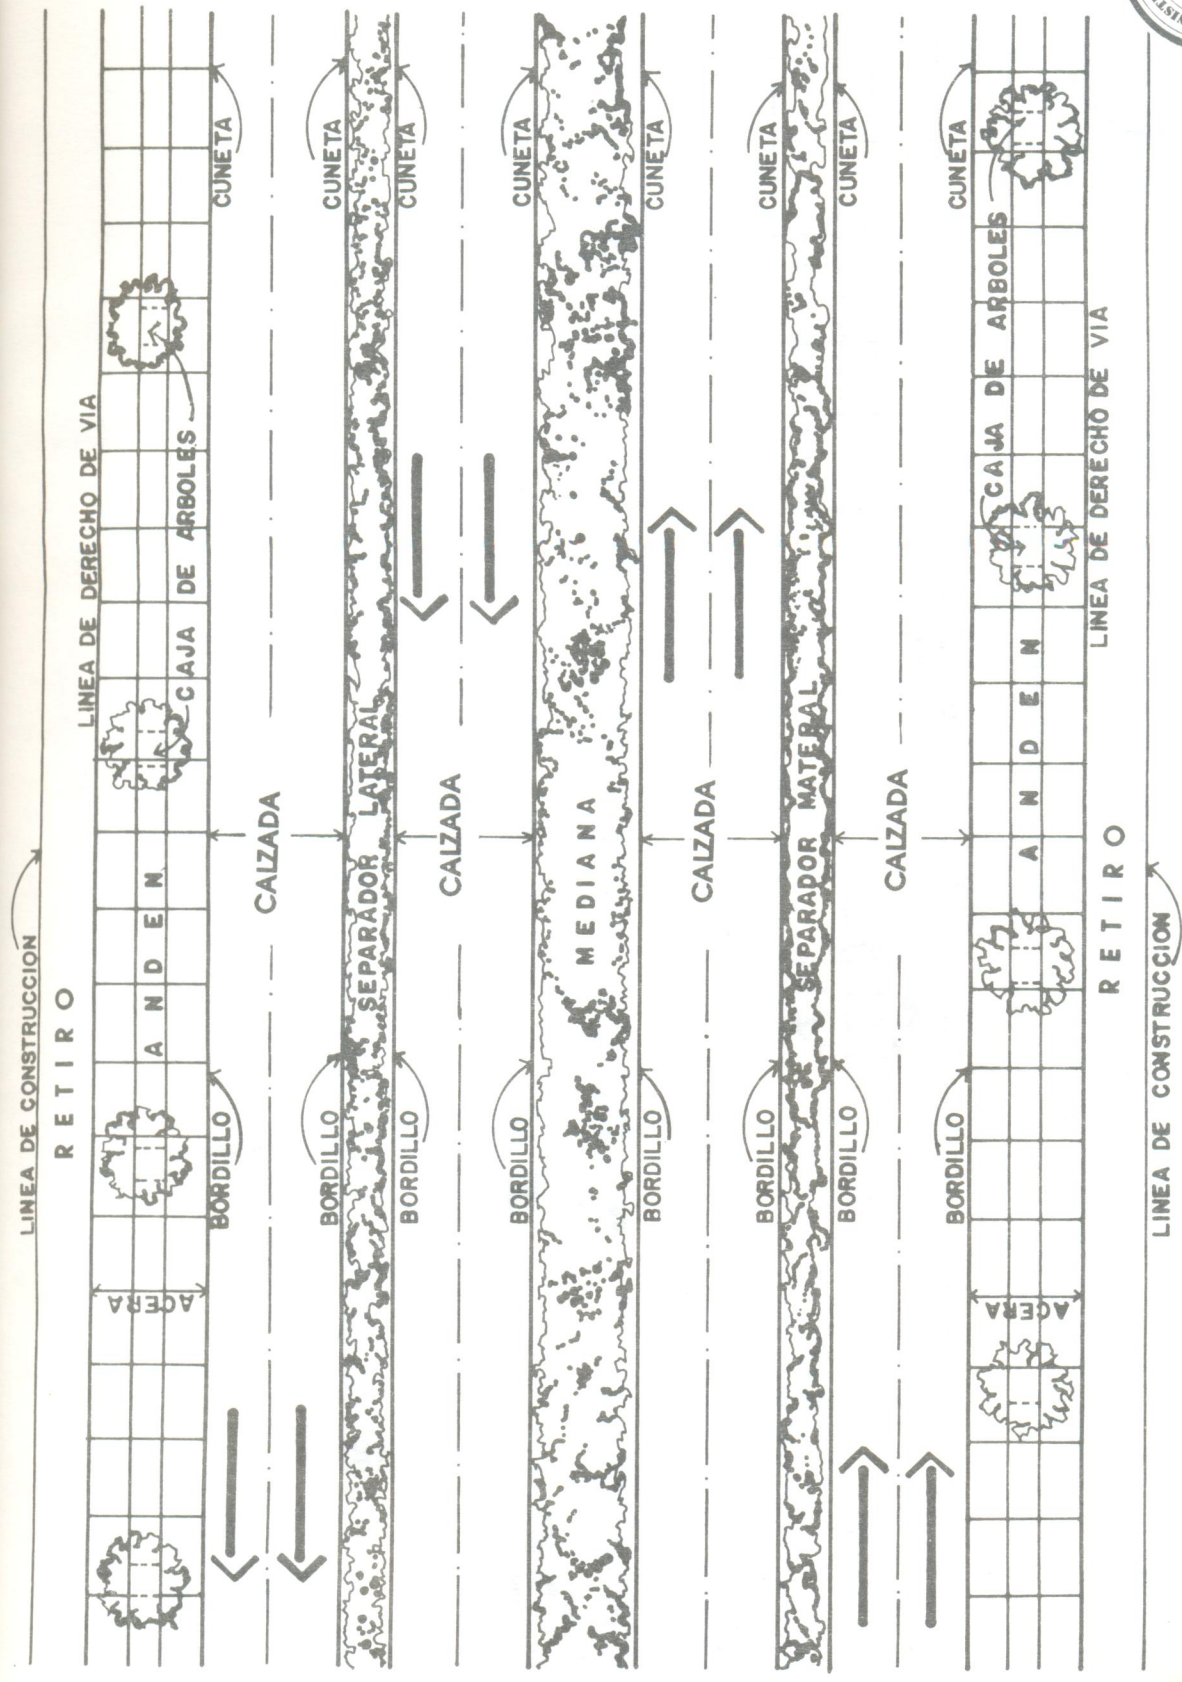 LINEA DE CONSTRUCCION
RETIRO
LINEA DE DERECHO DE VIA
ANDEN
CAJA DE ARBOLES
ACERA
BORDILLO
CUNETA
CALZADA
BORDILLO
CUNETA
SEPARADOR LATERAL
BORDILLO
CUNETA
CALZADA
BORDILLO
CUNETA
MEDIANA
BORDILLO
CUNETA
CALZADA
BORDILLO
CUNETA
SEPARADOR MATERAL
BORDILLO
CUNETA
CALZADA
BORDILLO
CUNETA
CAJA DE ARBOLES
ACERA
ANDEN
LINEA DE DERECHO DE VIA
RETIRO
LINEA DE CONSTRUCCION